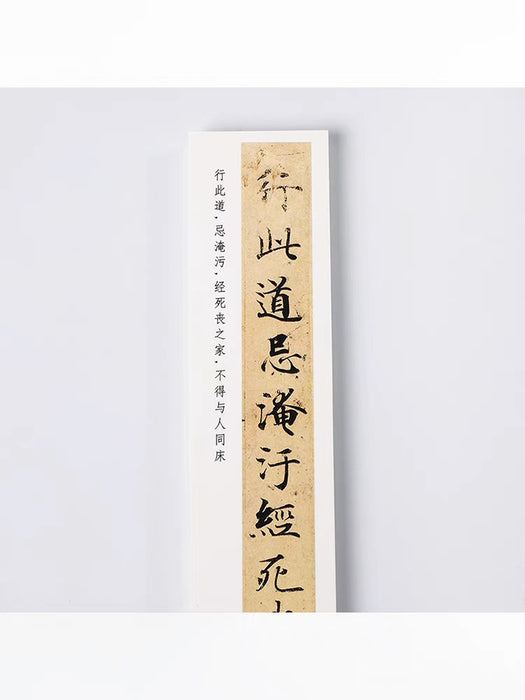 行此道忌淹汙經死
行此道.忌淹污.经死丧之家.不得与人同床